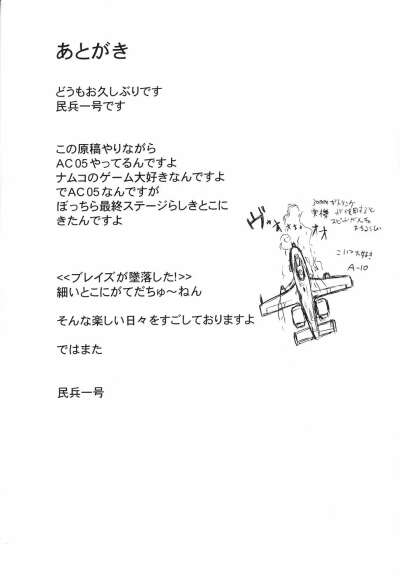 あとがき
どうもお久しぶりです
民兵一号です
この原稿やりながら
AC05やってるんですよ
ナムコのゲーム大好きなんですよ
でAC05なんですが
ぼっちら最終ステージらしきとこに
きたんですよ
<<ブレイズが墜落した!>>
細いとこにがてだちゅ～ねん
そんな楽しい日々をすごしておりますよ
ではまた
民兵一号
30mmガトリング
A-10